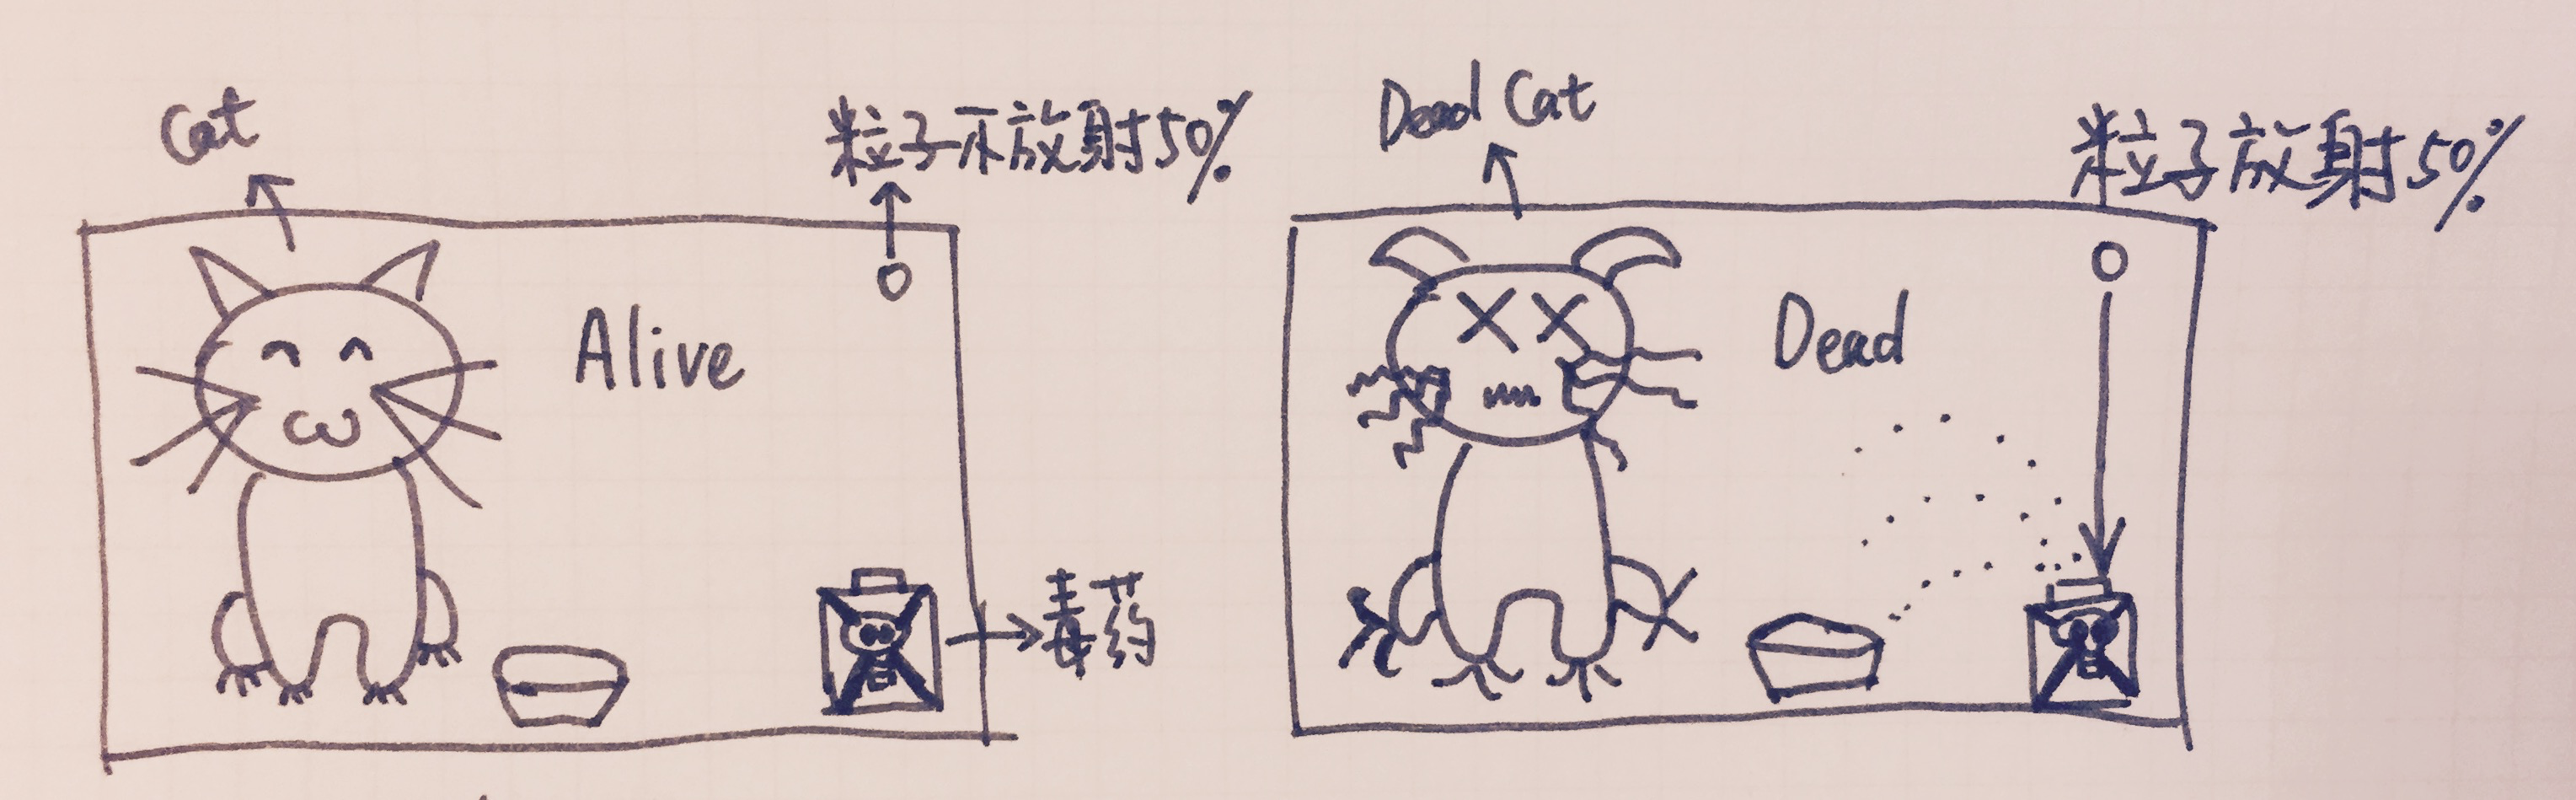 Cat
粒子不放射50%
Alive
毒药
Dead Cat
粒子放射50%
Dead